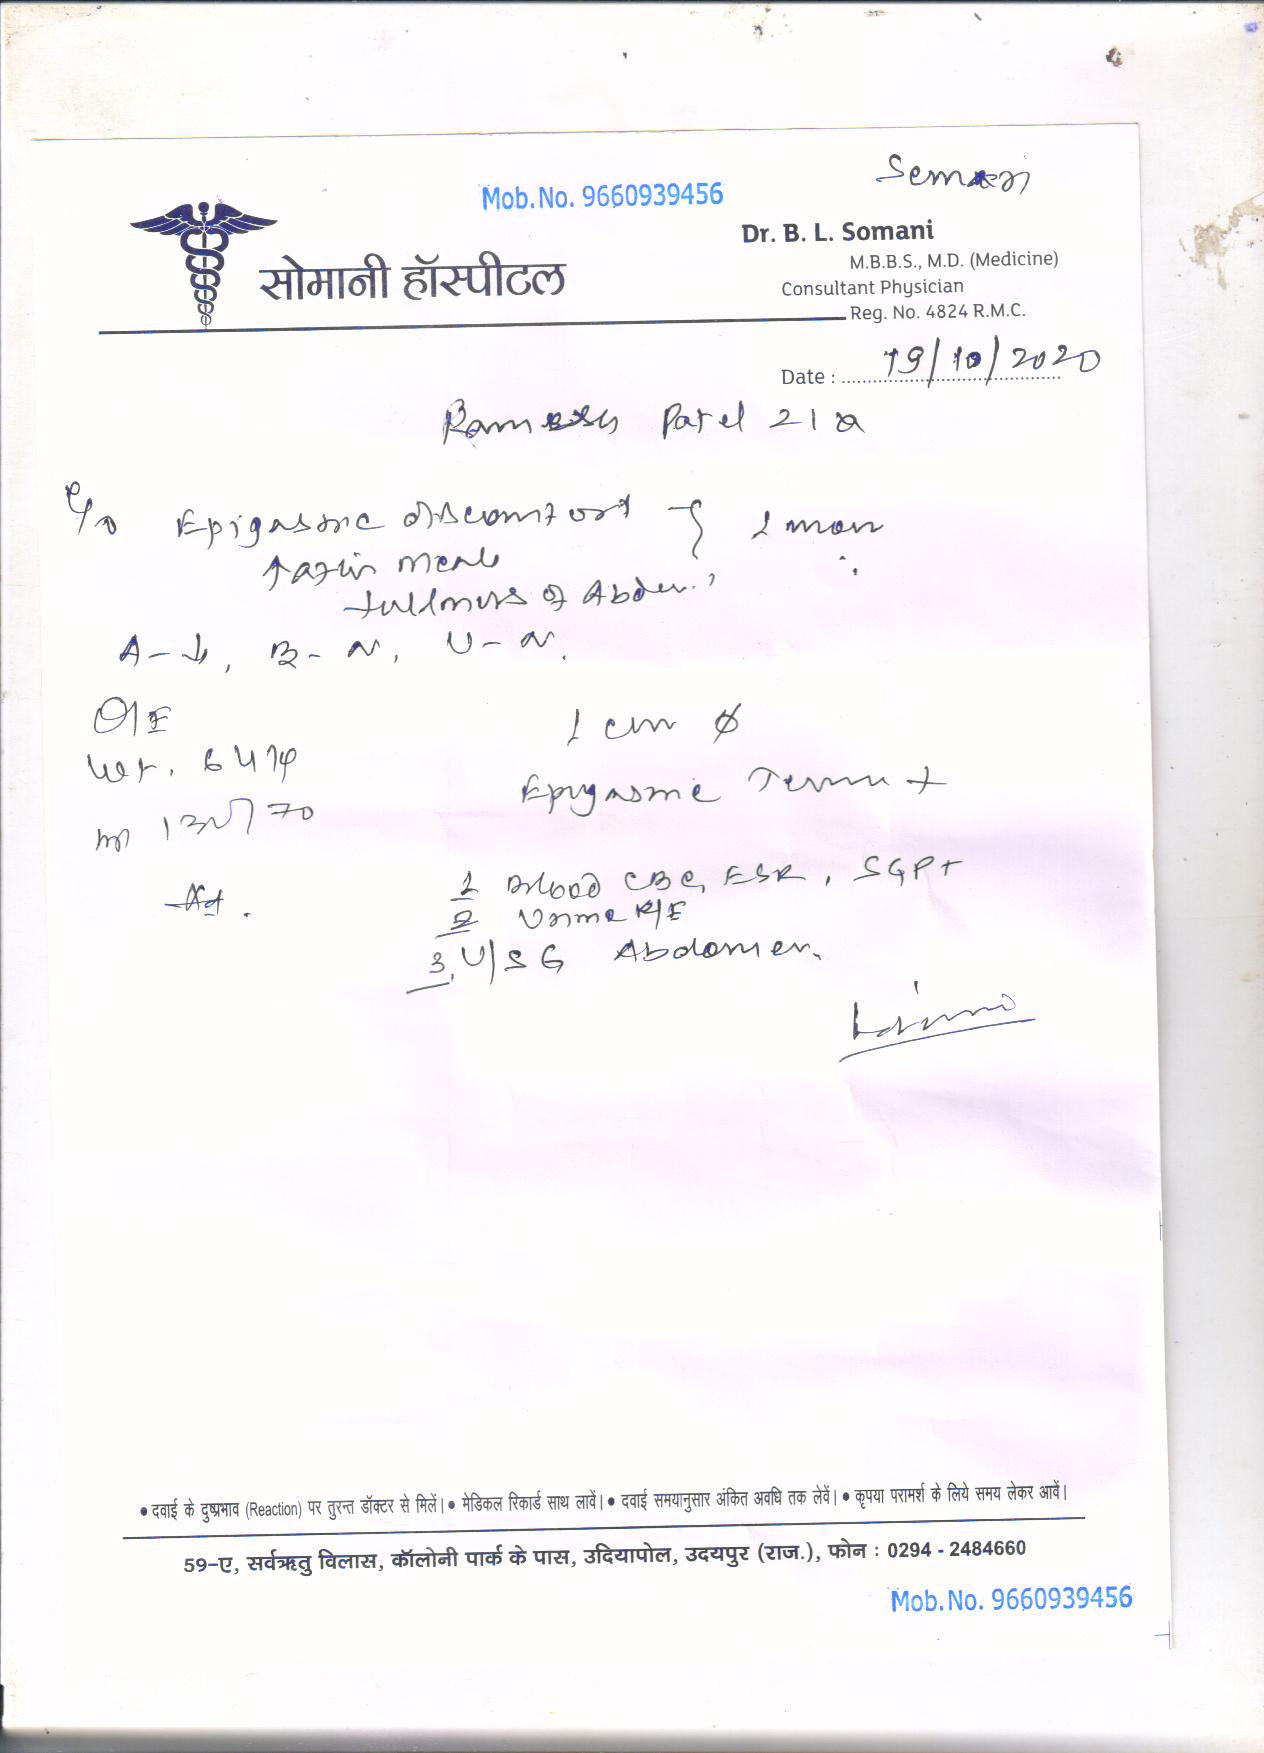 Mob.No. 9660939456
Dr. B. L. Somani
M.B.B.S., M.D. (Medicine)
सोमानी हॉस्पीटल
Consultant Physician
Reg. No. 4824 R.M.C.
Date : 19/10/2020
Patel 21
C/o Epigastric discomfort
meals
fullness of Abdo
A-↓, B-N, U-N.
O/E
Wt.
Epigastric
1 Blood CBC, ESR, SGPT
2 Urine R/E
3, U/SG Abdomen.
• दवाई के दुष्प्रभाव (Reaction) पर तुरन्त डॉक्टर से मिलें। • मेडिकल रिकार्ड साथ लावें। • दवाई समयानुसार अंकित अवधि तक लेवें। • कृपया परामर्श के लिये समय लेकर आवें।
59-ए, सर्वऋतु विलास, कॉलोनी पार्क के पास, उदियापोल, उदयपुर (राज.), फोन : 0294 - 2484660
Mob.No. 9660939456